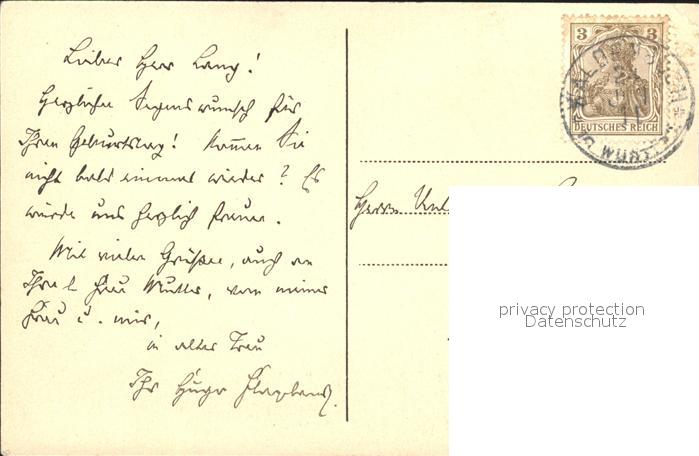 Lieber Herr Lang!
Herzlichen Segenswunsch für
Ihren Geburtstag! Kommen Sie
nicht bald einmal wieder? Es
würde uns herzlich freuen.
Mit vielen Grüßen, auch an
Ihre l. Frau Mutter, von meiner
Frau u. mir,
in alter Treue
Ihr Hugo
3 3
DEUTSCHES REICH
WÜRTT
Herrn
privacy protection
Datenschutz